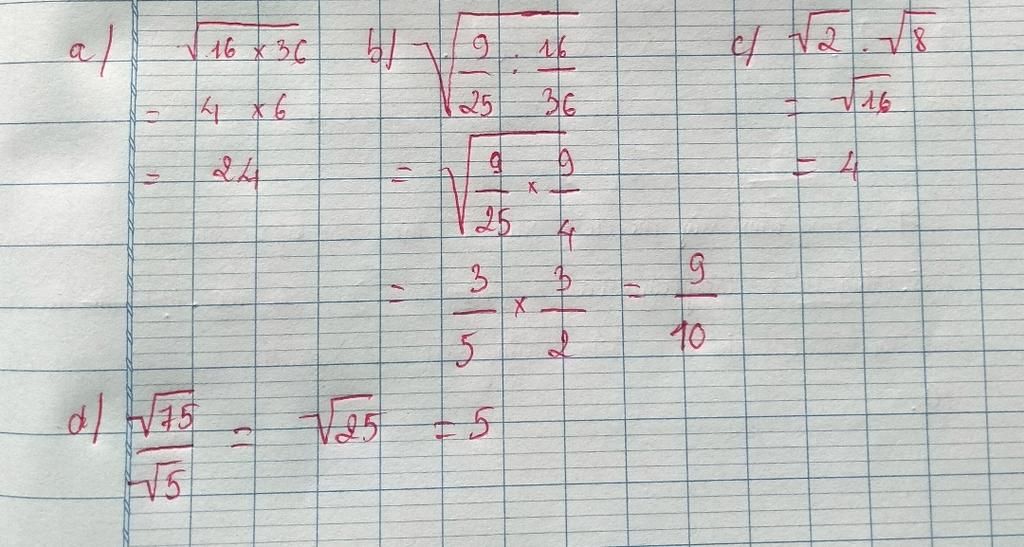 a) √(16 × 36)
= 4 × 6
= 24
b) √(9/25 : 16/36)
= √(9/25 × 9/4)
= 3/5 × 3/2 = 9/10
c) √2 . √8
= √16
= 4
d) √75/√5 = √25 = 5